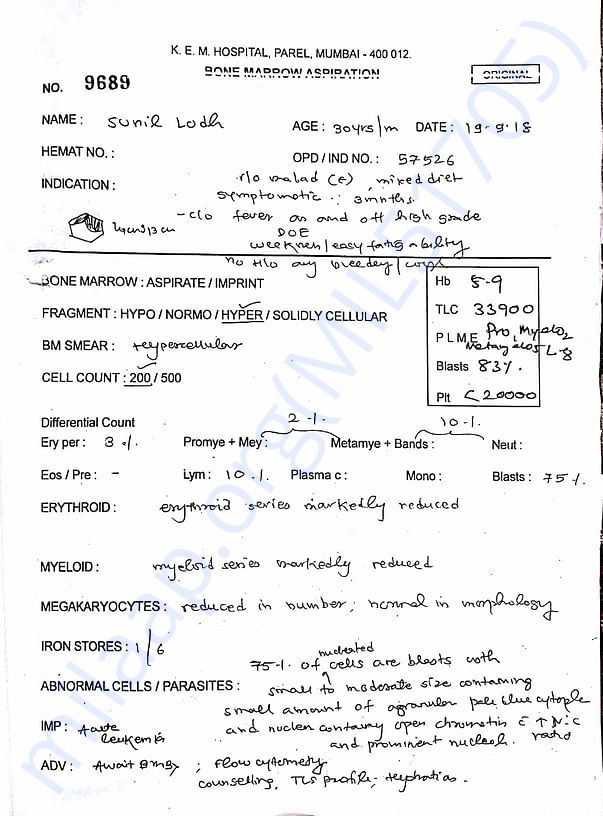 K. E. M. HOSPITAL, PAREL, MUMBAI - 400 012.
BONE MARROW ASPIRATION
ORIGINAL
NO. 9689
NAME : Sunil Lodh
AGE : 30yrs/m DATE : 19-9-18
HEMAT NO. :
OPD / IND NO. : 57526
INDICATION : r/o malad (E), mixed diet
symptomatic : 3mnths.
- c/o fever on and off high grade
DOE
weekness / easy fatigability
no H/o any
BONE MARROW : ASPIRATE / IMPRINT
FRAGMENT : HYPO / NORMO / HYPER / SOLIDLY CELLULAR
BM SMEAR : Hypercellular
CELL COUNT : 200 / 500
Hb 5.9
TLC 33900
P L M E Pro, Myelo2
Metamyelo5 L-8
Blasts 83%.
Plt <20000
Differential Count 2-1. 10-1.
Ery per : 3 -/. Promye + Mey : Metamye + Bands : Neut :
Eos / Pre : - Lym : 10.1. Plasma c : Mono : Blasts : 75-/.
ERYTHROID : erythroid series markedly reduced
MYELOID : myeloid series markedly reduced
MEGAKARYOCYTES : reduced in number, normal in morphology
IRON STORES : 1/6
75-1. of nucleated cells are blasts with
ABNORMAL CELLS / PARASITES : small to moderate size containing
small amount of agranular pale blue cytople
IMP : Acute leukemia
and nuclei containy open chromatin c ↑ N:C ratio
and prominent nucleoli.
ADV : Await Bmbx ; flow cytometry
counselling, TLS profile,
milaap.org(MIL51705)